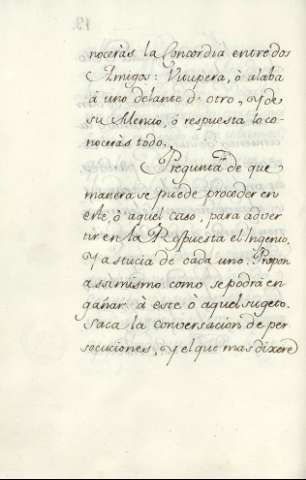 noceràs la Concordia entre dos
Amigos: Vitupera, ò alaba
à uno delante de otro, y de
su silencio, ò respuesta lo co-
noceràs todo.
Pregunta de que
manera se puede proceder en
este, ò aquel caso, para adver
tir en la Respuesta el Ingenio,
y astucia de cada uno. Propon
assimismo como se podrà en
gañar à este ò aquel sugeto.
Saca la conversacion de per
socuciones, y el que mas dixere